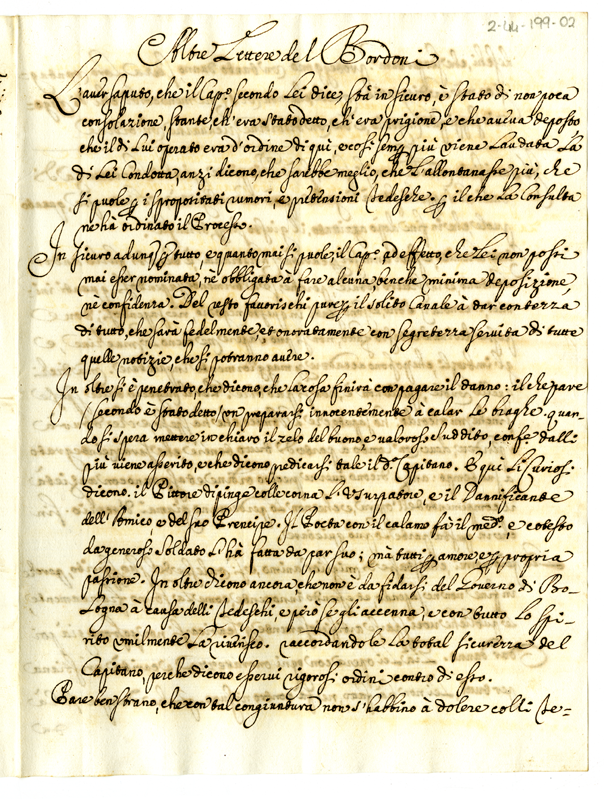 2-44-199-02
Altre Lettere del Bordoni
L'aver saputo, che il Cap.o secondo Lei dice stà in sicuro, è stato di non poca
consolazione, stante, ch'era stato detto, ch'era prigione, e che aveva deposto
che il di Lui operato era d'ordine di qui, e così semp più viene Laudata La
di Lei Condotta, anzi dicono, che sarebbe meglio, che L'allontanasse più, che
si puole p i spropositati rumori, e pretensioni Tedesche. p il che La Consulta
ne hà ordinato il Process.o
In sicuro adunq p tutto e quanto mai si puole, il Cap.o ad effetto, che Lei non possi
mai esser nominata, nè obbligata à fare alcuna, benche minima deposizione,
nè confidenza. Del resto favorischi pure p il solito Canale à dar contezza
di tutto, che sarà fedelmente, et onoratamente con segretezza servita di tutte
quelle notizie, che si potranno avere.
In oltre si è penetrato, che dicono, che La cosa finirà con pagare il danno: il che pare
(secondo è stato detto) un prepararsi innocentemente à calar Le braghe. quan-
do si spera mettere in chiaro il zelo del buono, e valoroso suddito, confe dalli
più viene asserito, e che dicono predicarsi tale il d.o Capitano. E qui Li Curiosi
dicono. il Pittore dipinge colle corna L'Usurpatore, e il Dannificante
dell'Amico e del suo Prencipe. Il Poeta con il calamo fà il med.o, e cotesto
da generoso soldato L'hà fatta da par suo; mà tutti p amore e p propria
passione. In oltre dicono ancora, che non è da fidarsi del Governo di Bo-
Logna à causa delli Tedeschi, e però se gli accenna, e con tutto Lo spi-
rito umilmente La riverisco. raccordandole La total sicurezza del
Capitano, perche dicono esservi rigorosi ordini contro di esso.
Pare ben strano, che con tal congiuntura non s'habbino à dolere colli Te-